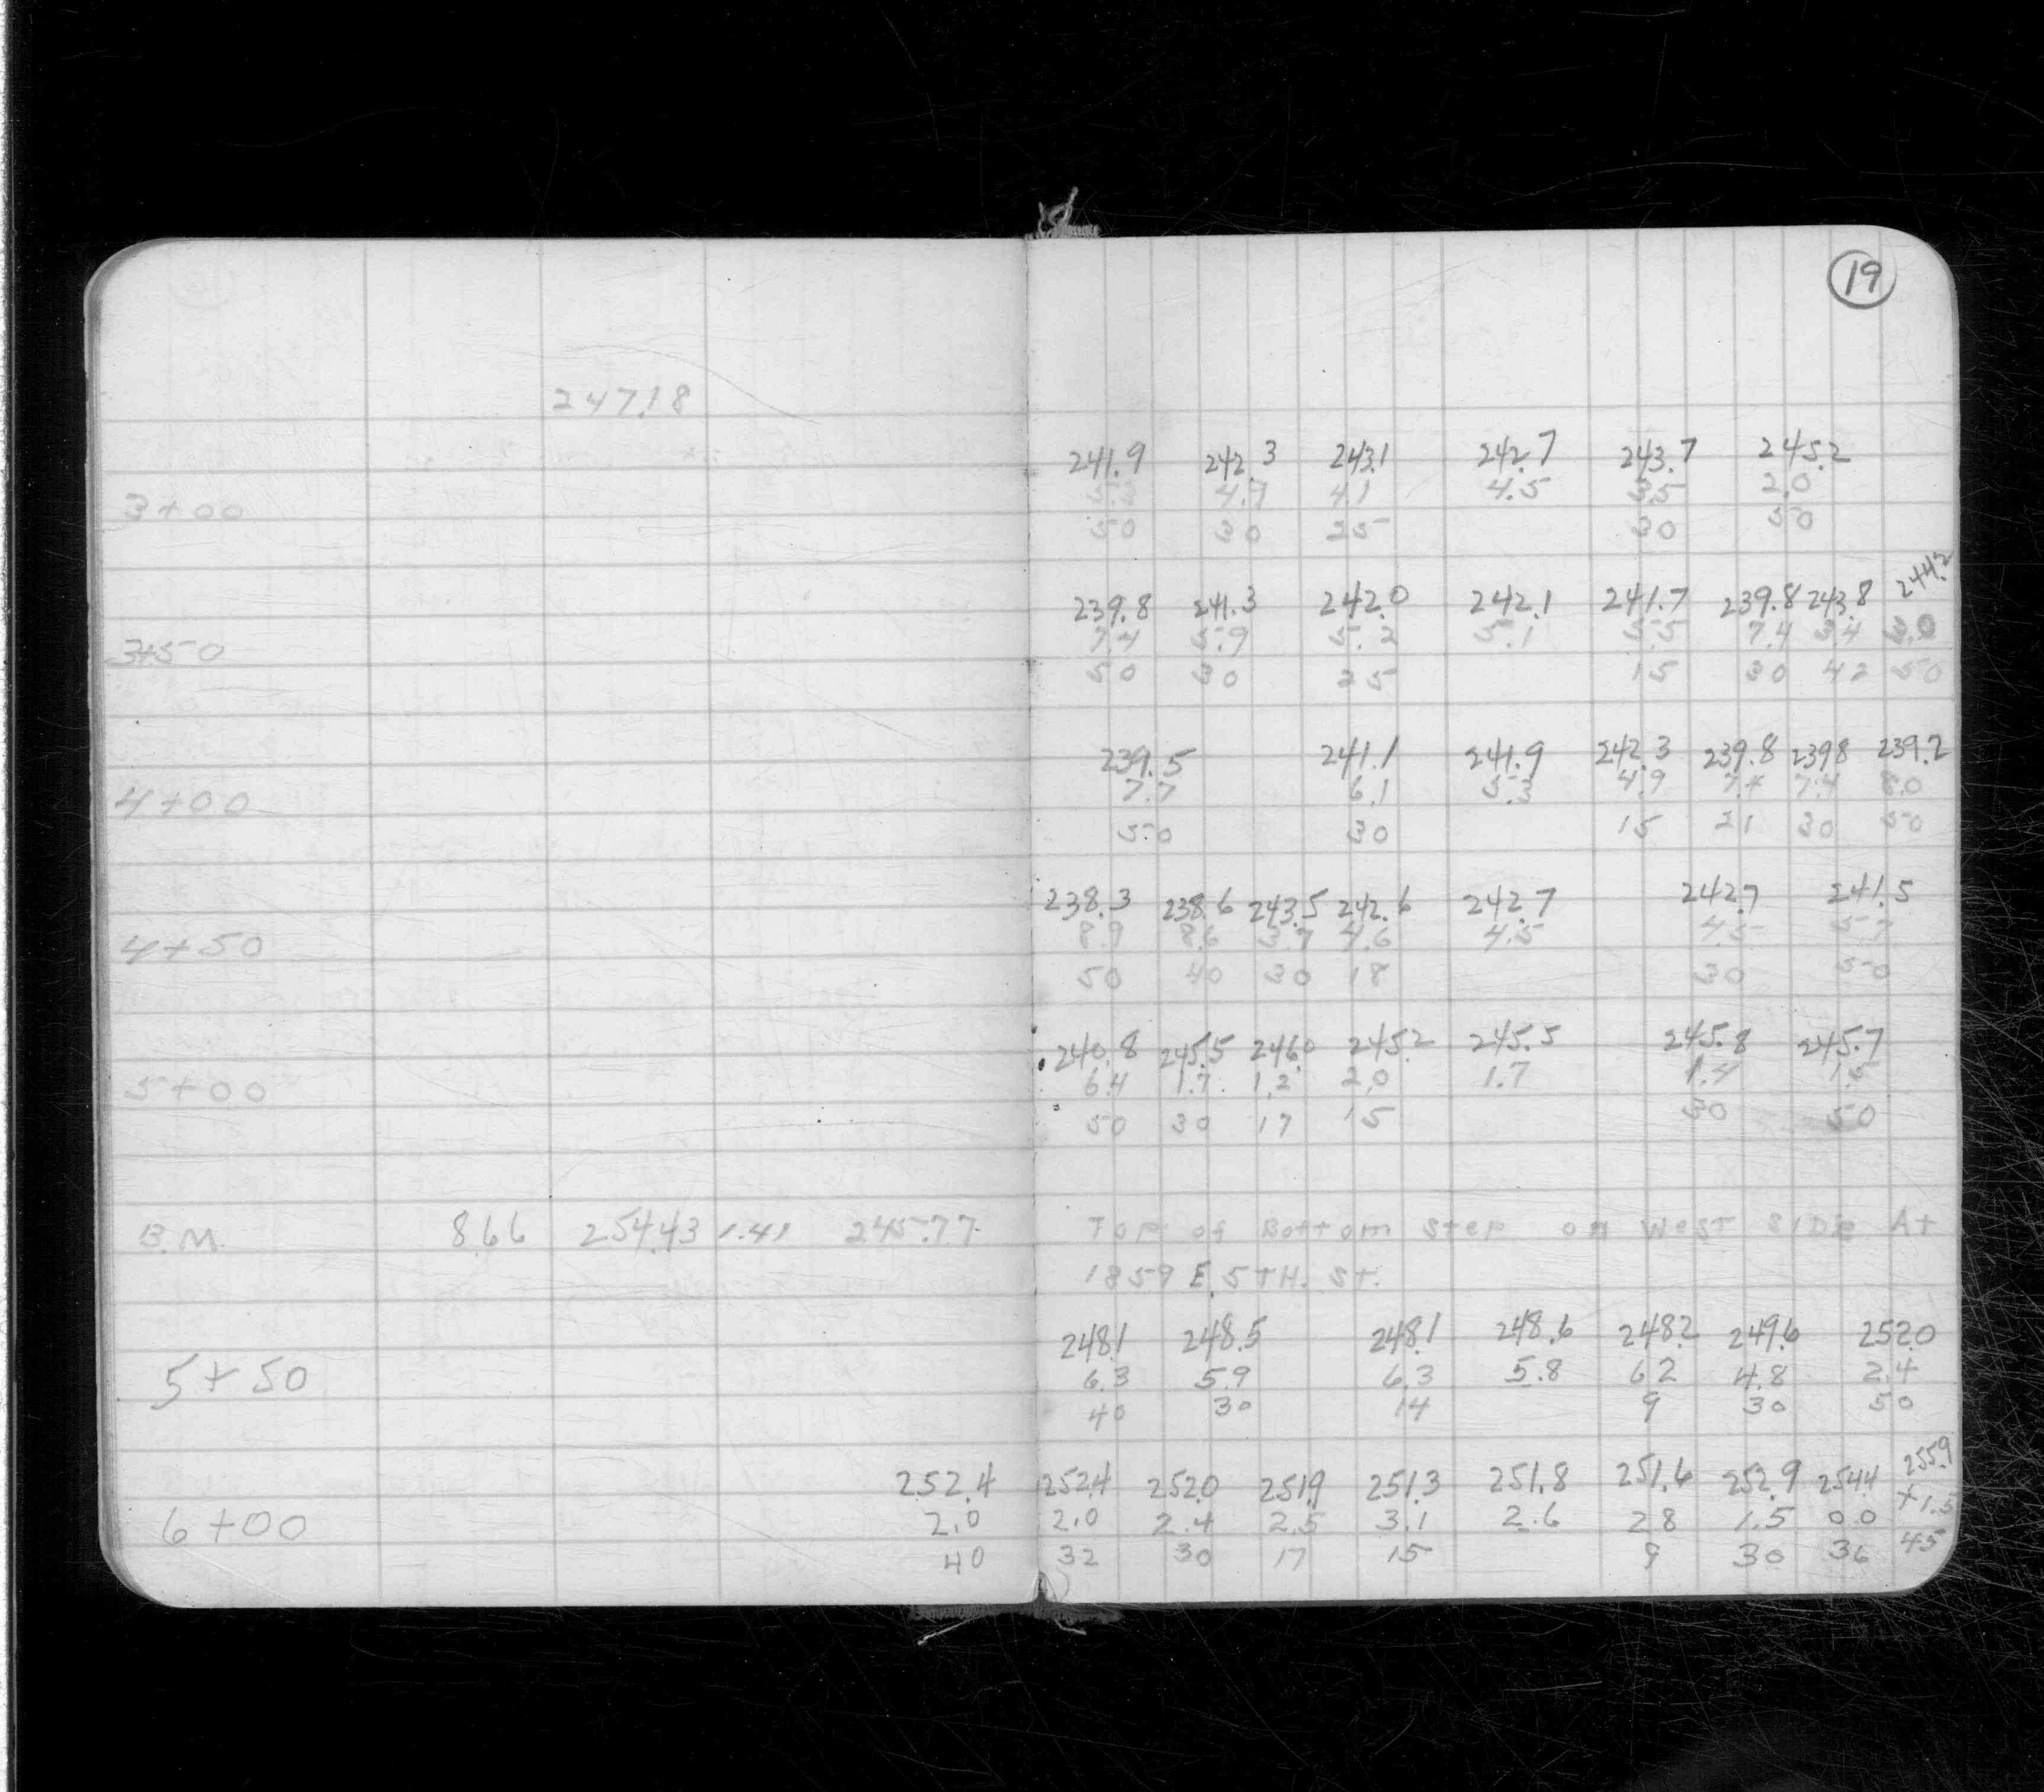 19
247.18
241.9 242.3 243.1 242.7 243.7 245.2
4.9 4.1 4.5 3.5 2.0
3+00
50 30 25 30 50
239.8 241.3 242.0 242.1 241.7 239.8 243.8 244.2
7.4 5.9 5.2 5.1 5.5 7.4 3.4 3.0
3+50
50 30 25 15 30 42 50
239.5 241.1 241.9 242.3 239.8 239.8 239.2
7.7 6.1 5.3 4.9 7.4 7.4 8.0
4+00
50 30 15 21 30 50
238.3 238.6 243.5 242.6 242.7 242.7 241.5
8.9 8.6 3.7 4.6 4.5 4.5 5.7
4+50
50 40 30 18 30 50
240.8 245.5 246.0 245.2 245.5 245.8 245.7
6.4 1.7 1.2 2.0 1.7 1.4 1.5
5+00
50 30 17 15 30 50
B.M. 8.66 254.43 1.41 245.77 Top of Bottom Step on West SIDE At
1859 E. 5TH. St.
248.1 248.5 248.1 248.6 248.2 249.6 252.0
5+50 6.3 5.9 6.3 5.8 6.2 4.8 2.4
40 30 14 9 30 50
252.4 252.4 252.0 251.9 251.3 251.8 251.6 252.9 254.4 255.9
6+00 2.0 2.0 2.4 2.5 3.1 2.6 2.8 1.5 0.0 +1.5
40 32 30 17 15 9 30 36 45